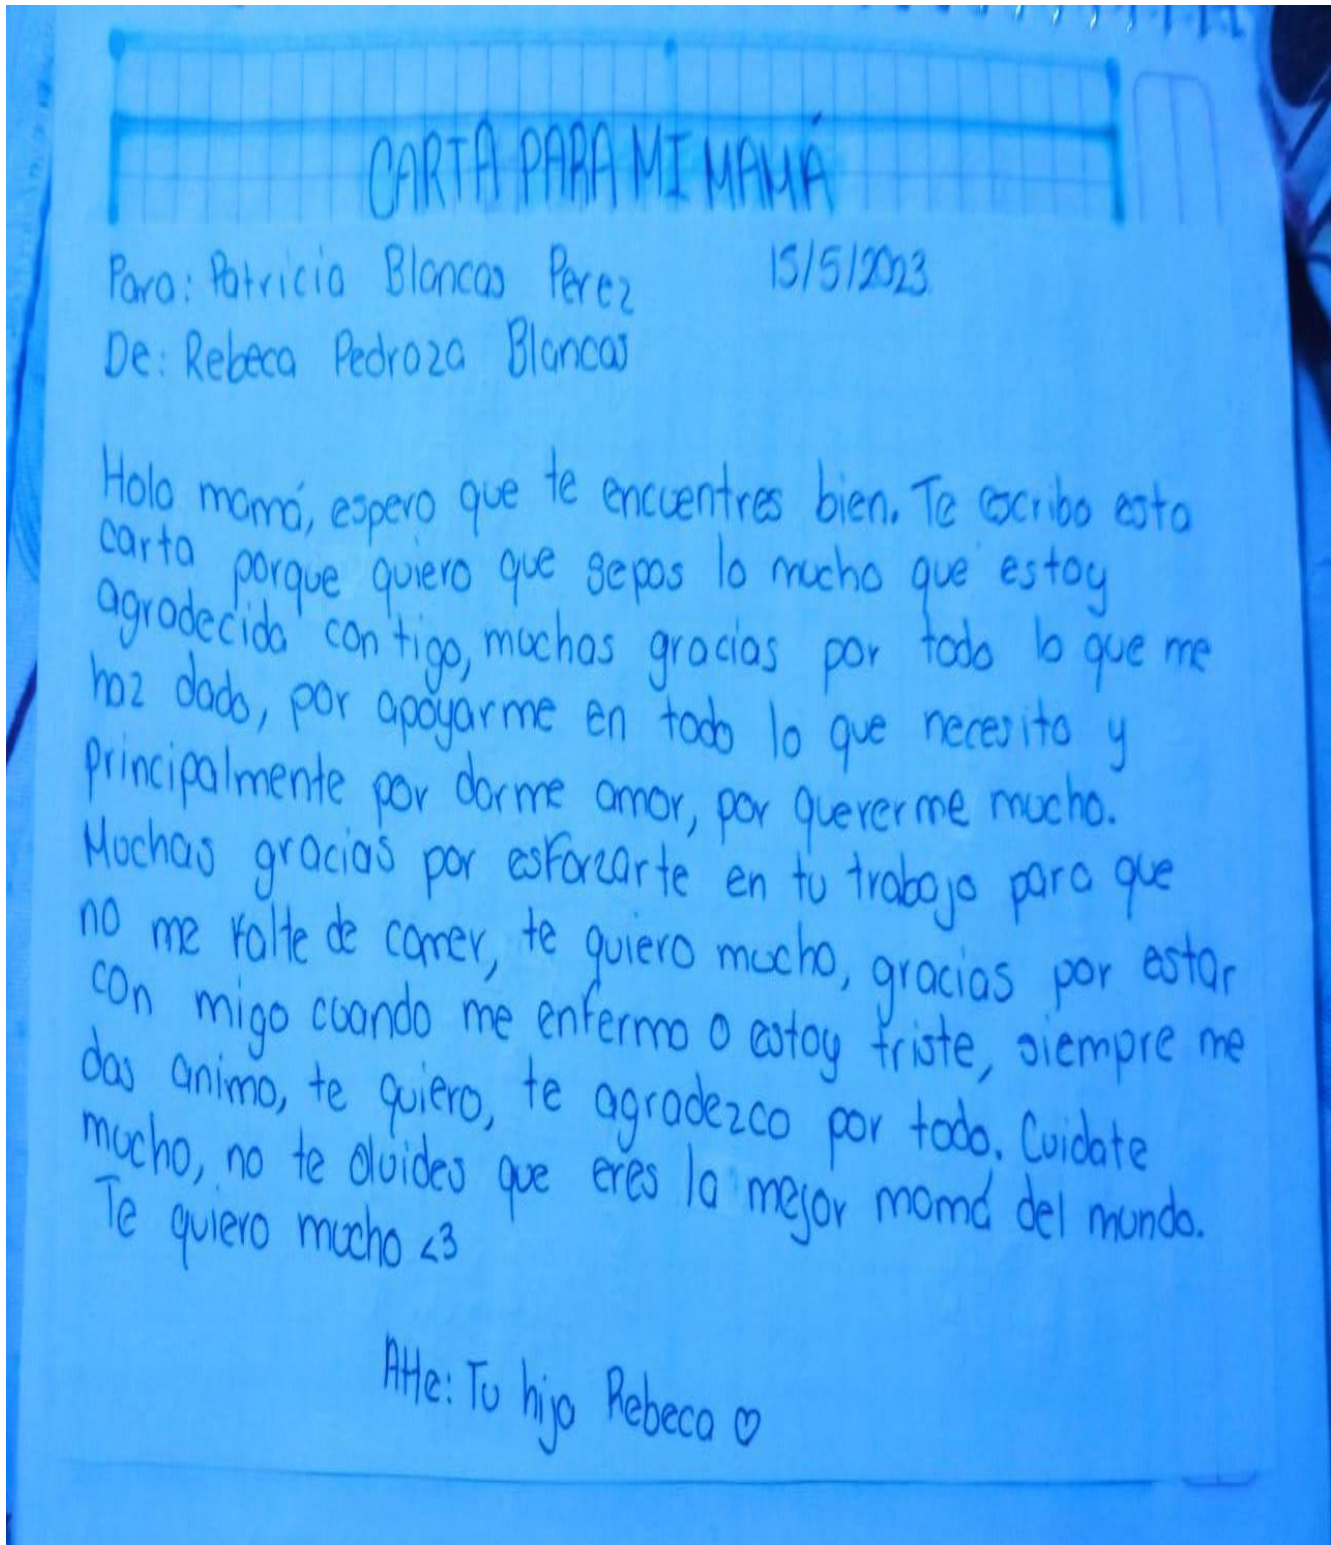 CARTA PARA MI MAMÁ
Para: Patricia Blancas Perez 15/5/2023
De: Rebeca Pedroza Blancas
Hola mamá, espero que te encuentres bien. Te escribo esta
carta porque quiero que sepas lo mucho que estoy
agradecida con tigo, muchas gracias por todo lo que me
haz dado, por apoyarme en todo lo que necesito y
principalmente por darme amor, por quererme mucho.
Muchas gracias por esforzarte en tu trabajo para que
no me falte de comer, te quiero mucho, gracias por estar
con migo cuando me enfermo o estoy triste, siempre me
das animo, te quiero, te agradezco por todo. Cuidate
mucho, no te olvides que eres la mejor mamá del mundo.
Te quiero mucho <3
Atte: Tu hija Rebeca ♡